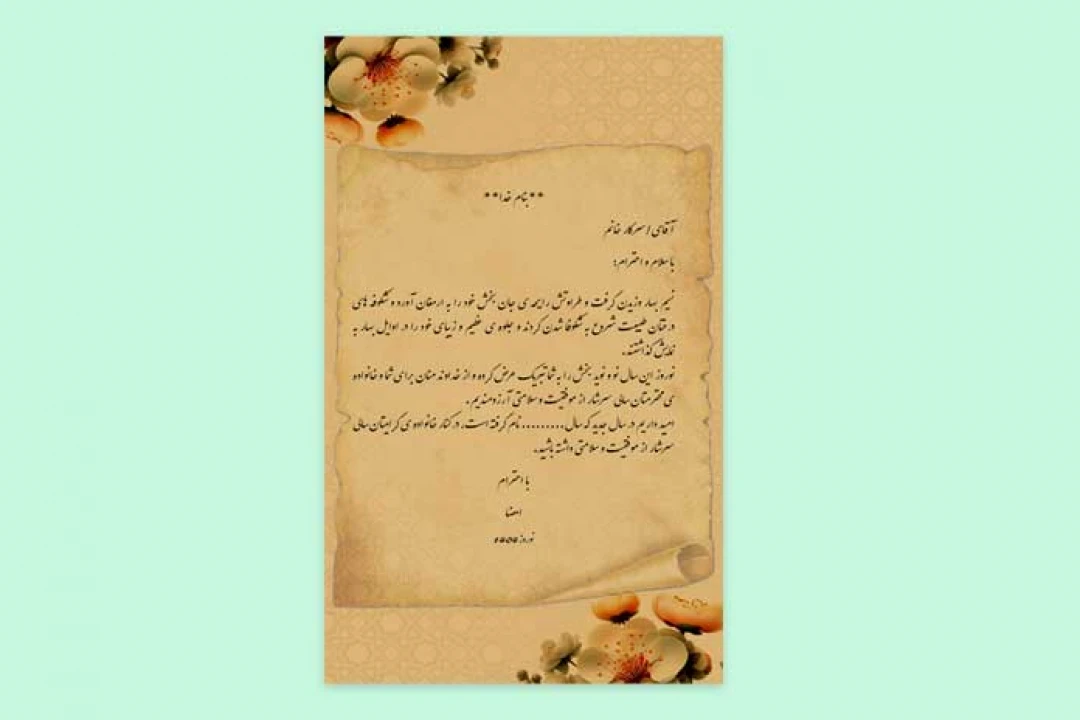 **بنام خدا**
آقای / سرکار خانم
با سلام و احترام؛
نسیم بهار وزیدن گرفت و طراوتش رایحه ی جان بخش خود را به ارمغان آورد و شکوفه های
درختان طبیعت شروع به شکوفا شدن کردند و جلوه ی عظیم و زیبای خود را در اوایل بهار به
نمایش گذاشتند.
نوروز این سال نو و نوید بخش را به شما تبریک عرض کرده و از خداوند منان برای شما و خانواده
ی محترمتان سالی سرشار از موفقیت و سلامتی آرزومندیم.
امید داریم در سال جدید که سال......... نام گرفته است، در کنار خانواده ی گرامیتان سالی
سرشار از موفقیت و سلامتی داشته باشید.
با احترام
امضا
نوروز